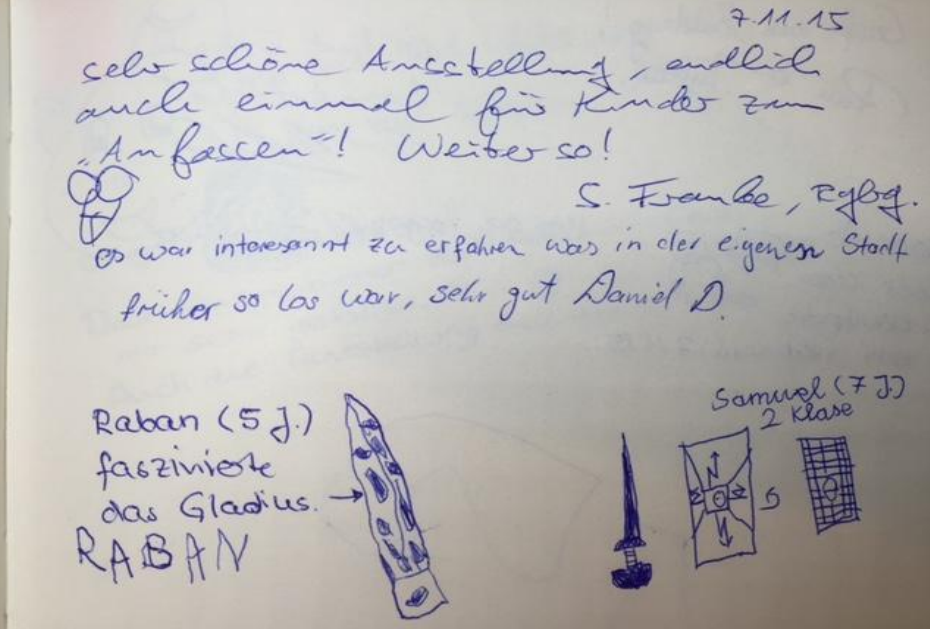 7.11.15
sehr schöne Ausstellung, endlich
auch einmal für Kinder zum
"Anfassen"! Weiter so!
S. Franke, Rgbg.
es war interesannt zu erfahren was in der eigenen Stadt
früher so los war, sehr gut Daniel D.
Raban (5 J.)
faszinierte
das Gladius. →
RABAN
Samuel (7 J.)
2 Klase